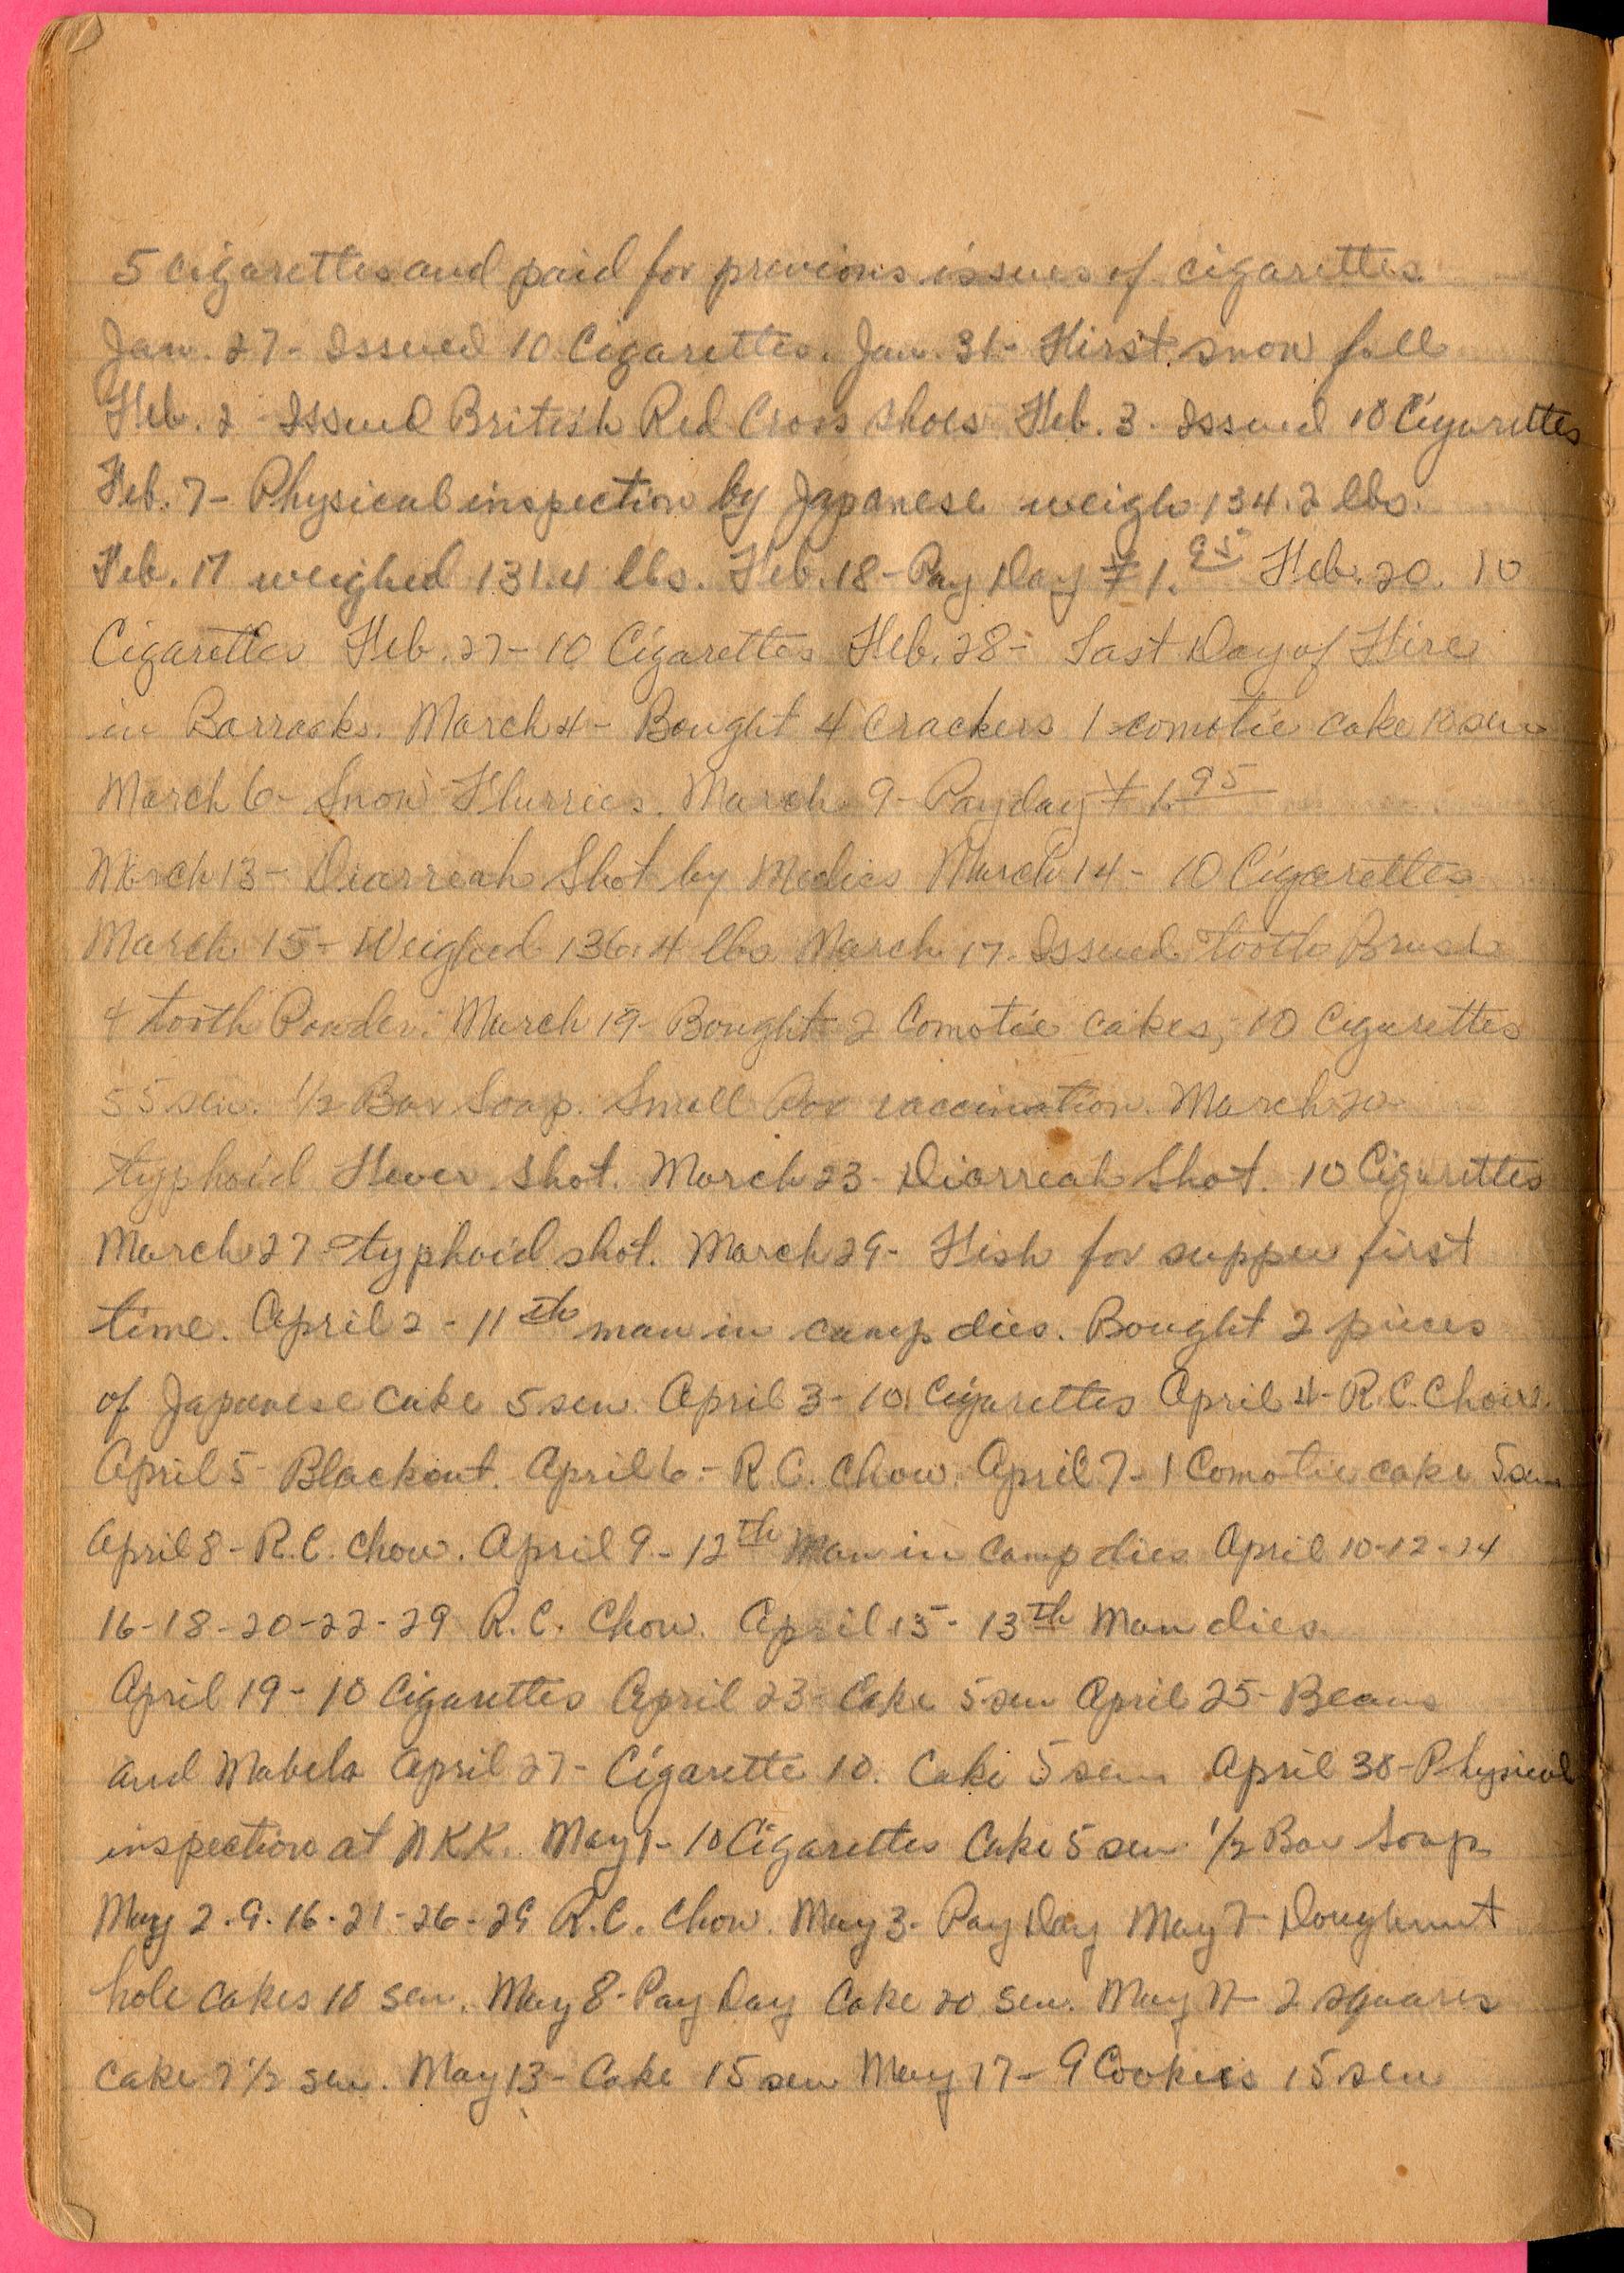 5 cigarettes and paid for previous issues of cigarettes
Jan. 27- Issued 10 Cigarettes. Jan. 31- First snow fall
Feb. 2- Issued British Red Cross shoes Feb. 3- Issued 10 Cigarettes
Feb. 7- Physical inspection by Japanese weigh 134.2 lbs.
Feb. 17 weighed 131.4 lbs. Feb. 18- Pay Day ¥1.95 Feb. 20. 10
Cigarettes Feb. 27- 10 Cigarettes Feb. 28- Last Day of Fire
in Barracks. March 4- Bought 4 Crackers 1 comotie cake 10 sen
March 6- Snow Flurries. March 9- Payday ¥1.95
March 13- Diarreah Shot by Medics March 14- 10 Cigarettes
March 15- Weighed 136.4 lbs March 17- Issued tooth Brush
& tooth Powder. March 19- Bought 2 Comotie cakes, 10 Cigarettes
55 sen. 1/2 Bar Soap. Small Pox vaccination. March 20-
typhoid Fever shot. March 23- Diarreah Shot. 10 Cigarettes
March 27- typhoid shot. March 29- Fish for supper first
time. April 2- 11th man in camp dies. Bought 2 pieces
of Japanese cake 5 sen. April 3- 10 Cigarettes April 4- R.C. Chow.
April 5- Blackout. April 6- R.C. Chow. April 7- 1 Comotie cake 5 sen
April 8- R.C. Chow. April 9- 12th Man in Camp dies April 10-12-14
16-18-20-22-29 R.C. Chow. April 15- 13th Man dies.
April 19- 10 Cigarettes April 23- Cake 5 sen April 25- Beans
and Mabela April 27- Cigarette 10. Cake 5 sen April 30- Physical
inspection at NKK. May 1- 10 Cigarettes Cake 5 sen 1/2 Bar Soap
May 2-9-16-21-26-29 R.C. Chow. May 3- Pay Day May 7- Doughnut
hole cakes 10 sen. May 8- Pay Day Cake 20 sen. May 11- 2 squares
cake 7 1/2 sen. May 13- Cake 15 sen May 17- 9 Cookies 15 sen